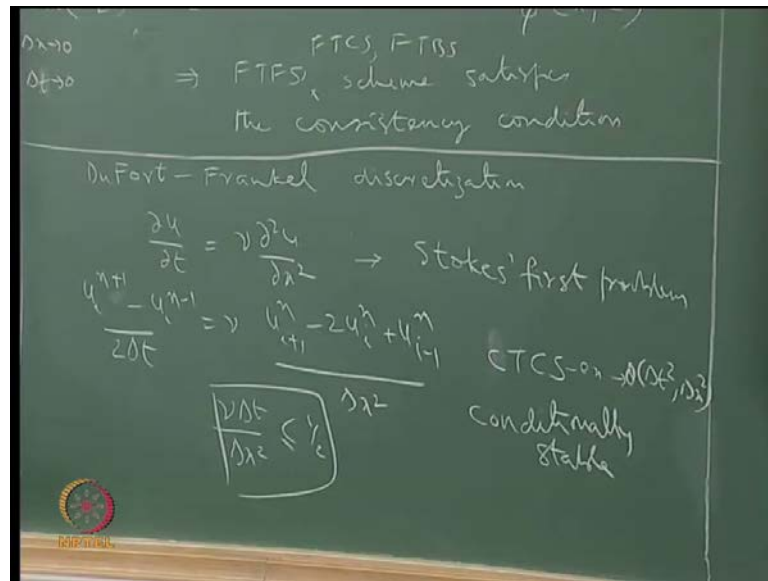 Δx→0
FTCS, FTBS
Δt→0 ⇒ FTFS, scheme satisfies
the consistency condition
DuFort-Frankel discretization
∂u/∂t = ν ∂²u/∂x² → Stokes' first problem
(u_i^{n+1} - u_i^{n-1})/(2Δt) = ν (u_{i+1}^n - 2u_i^n + u_{i-1}^n)/Δx²
CTCS → O(Δt², Δx²)
conditionally
stable
νΔt/Δx² ≤ 1/2
NPTEL